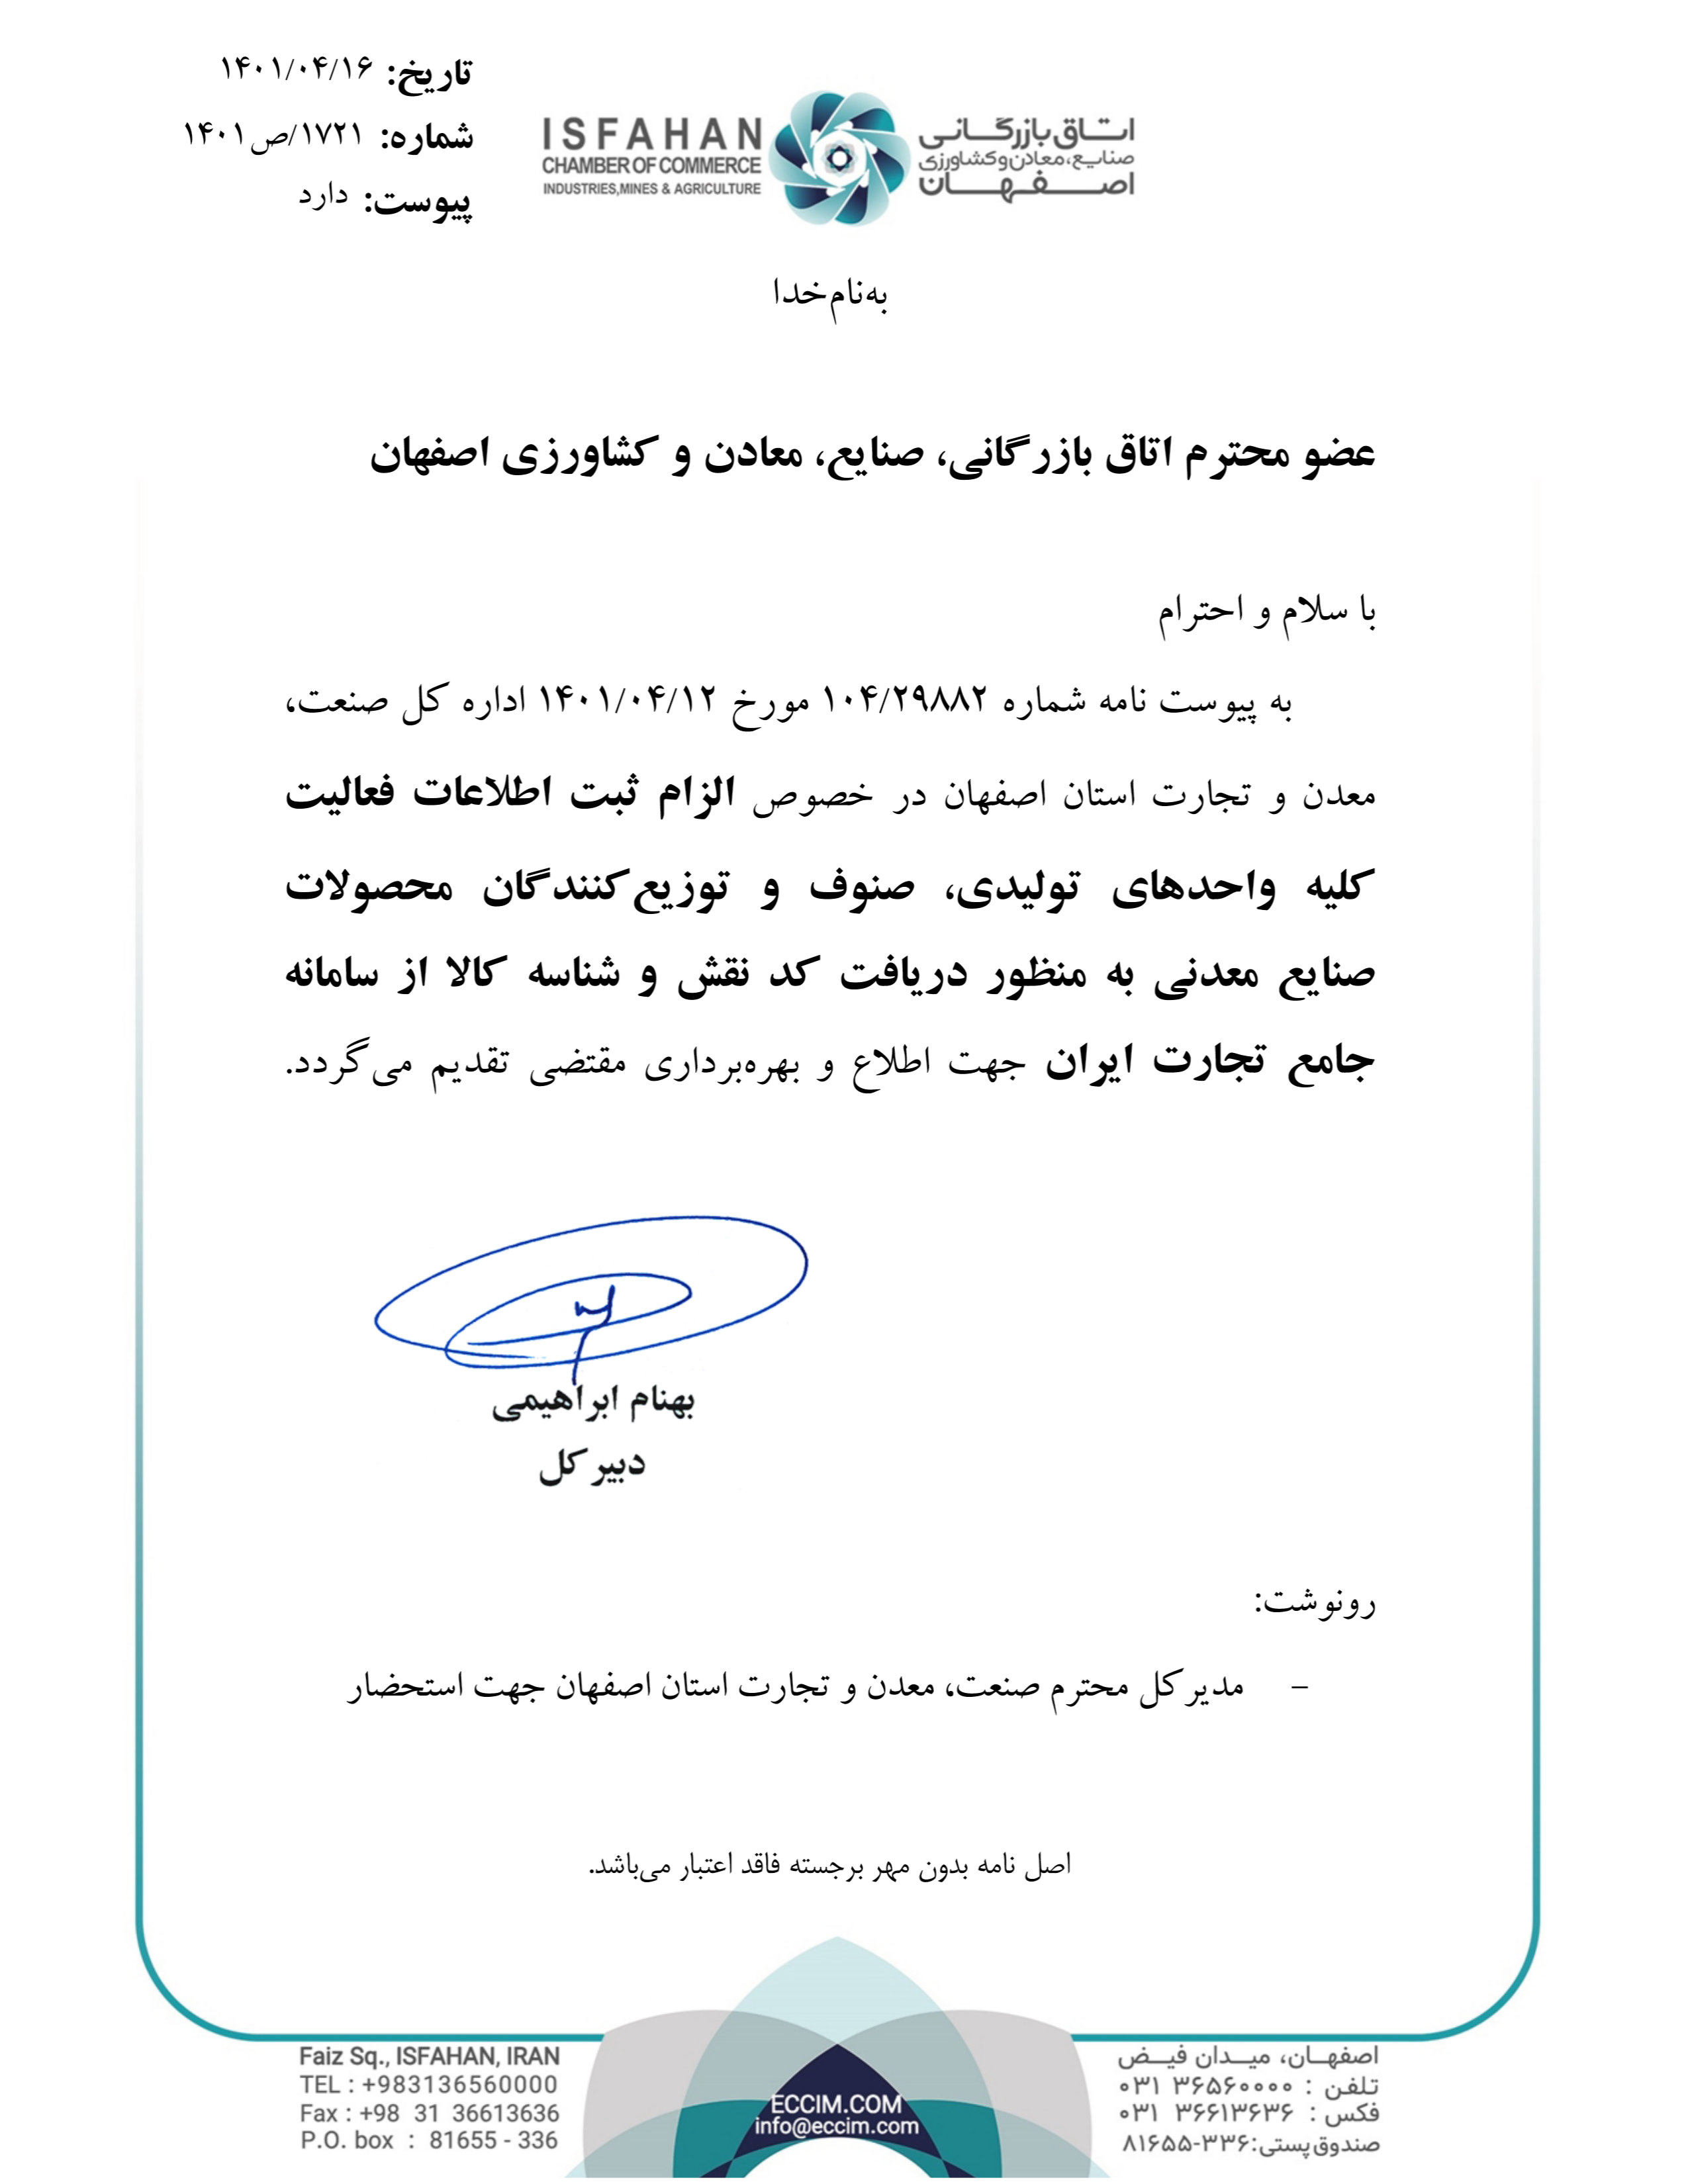 تاریخ: ۱۴۰۱/۰۴/۱۶
شماره: ۱۷۲۱/ص۱۴۰۱
پیوست: دارد
ISFAHAN
CHAMBER OF COMMERCE
INDUSTRIES,MINES & AGRICULTURE
اتاق بازرگانی
صنایع، معادن و کشاورزی
اصفهان
به‌نام‌خدا
عضو محترم اتاق بازرگانی، صنایع، معادن و کشاورزی اصفهان
با سلام و احترام
به پیوست نامه شماره ۱۰۴/۲۹۸۸۲ مورخ ۱۴۰۱/۰۴/۱۲ اداره کل صنعت،
معدن و تجارت استان اصفهان در خصوص الزام ثبت اطلاعات فعالیت
کلیه واحدهای تولیدی، صنوف و توزیع‌کنندگان محصولات
صنایع معدنی به منظور دریافت کد نقش و شناسه کالا از سامانه
جامع تجارت ایران جهت اطلاع و بهره‌برداری مقتضی تقدیم می‌گردد.
بهنام ابراهیمی
دبیر کل
رونوشت:
- مدیرکل محترم صنعت، معدن و تجارت استان اصفهان جهت استحضار
اصل نامه بدون مهر برجسته فاقد اعتبار می‌باشد.
Faiz Sq., ISFAHAN, IRAN
TEL : +983136560000
Fax : +98 31 36613636
P.O. box : 81655 - 336
ECCIM.COM
info@eccim.com
اصفهان، میدان فیض
تلفن : ۳۶۵۶۰۰۰۰ ۰۳۱
فکس : ۳۶۶۱۳۶۳۶ ۰۳۱
صندوق پستی: ۳۳۶-۸۱۶۵۵